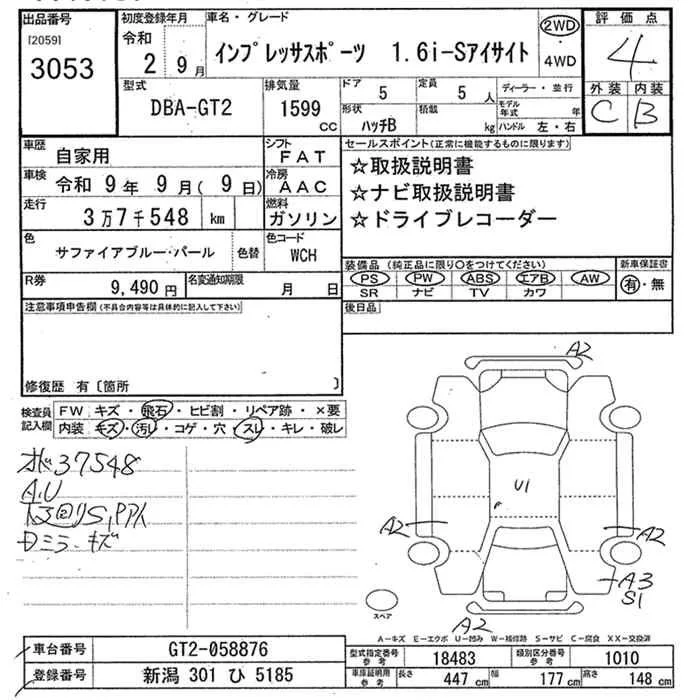 出品番号 初度登録年月 車名・グレード 評価点
[2059] 令和 2WD ・ 4WD 4
3053 2 9月 インプレッサスポーツ 1.6i-Sアイサイト
型式 排気量 ドア 定員 ディーラー・並行 外装 内装
DBA-GT2 1599 CC 5 5 人 モデル年式 年 C B
形状 積載
ハッチB kg ハンドル 左・右
車歴 自家用 シフト FAT セールスポイント(正常に機能するものに限ります)
車検 令和 9年 9月( 9日) 冷房 AAC ☆取扱説明書
走行 3万7千548 km 燃料 ガソリン ☆ナビ取扱説明書
☆ドライブレコーダー
色 サファイアブルー・パール 色替 色コード WCH
R券 9,490円 名変通知期限 月 日
装備品 (純正品に限り〇をつけてください) 新車保証書
PS PW ABS エアB AW 有・無
SR ナビ TV カワ
注意事項申告欄(不具合内容等は具体的に記入して下さい) 後日品
修復歴 有〔箇所 〕
検査員記入欄 FW キズ・飛石・ヒビ割・リペア跡・×要
内装 キズ・汚レ・コゲ・穴・スレ・キレ・破レ
37548
A.U
ドミラーキズ
A2
U1
A2
A2
A3
S1
A2
スペア
A-キズ E-エクボ U-凹み W-補修跡 S-サビ C-腐食 XX-交換済
車台番号 GT2-058876 型式指定番号 参考 18483 類別区分番号 参考 1010
登録番号 新潟 301 ひ 5185 車庫証明用 参考 長さ 447 cm 幅 177 cm 高さ 148 cm